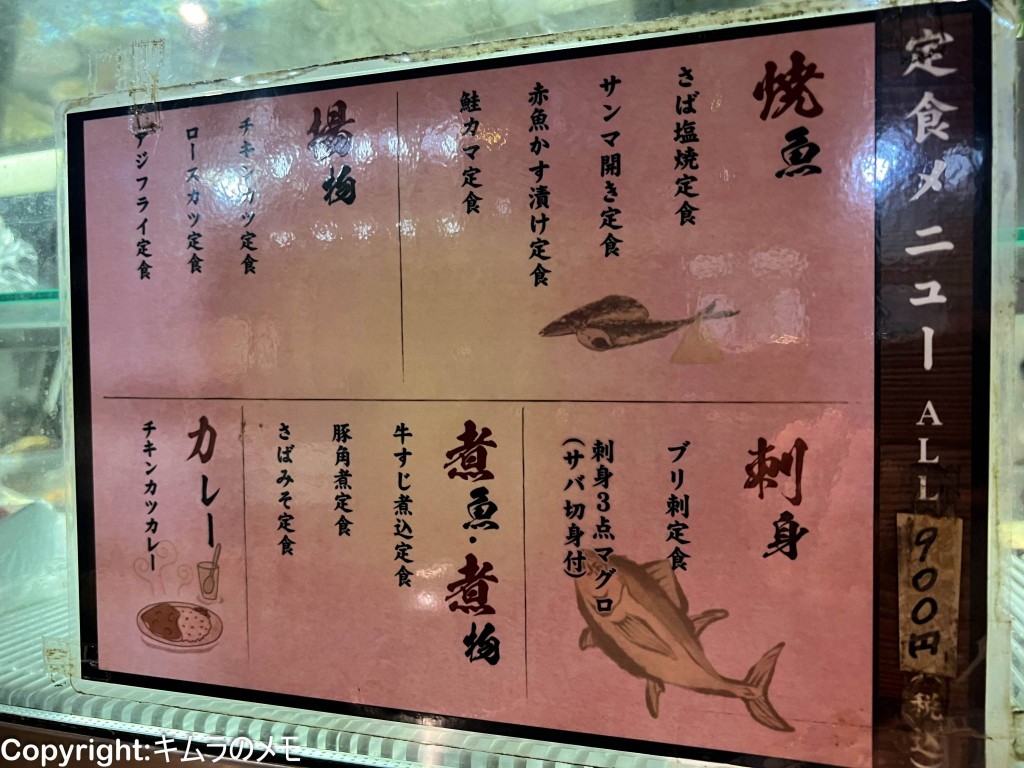 定食メニュー ALL 900円(税込)
焼魚
さば塩焼定食
サンマ開き定食
赤魚かす漬け定食
鮭カマ定食
揚物
チキンカツ定食
ロースカツ定食
アジフライ定食
刺身
ブリ刺定食
刺身3点マグロ
(サバ切身付)
煮魚・煮物
牛すじ煮込定食
豚角煮定食
さばみそ定食
カレー
チキンカツカレー
Copyright:キムラのメモ